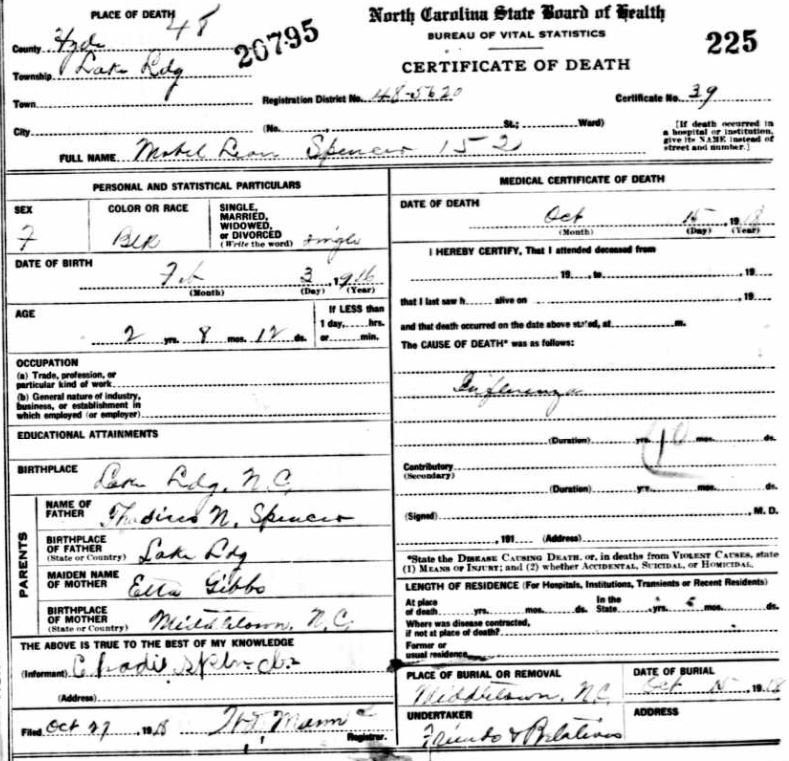 North Carolina State Board of Health
BUREAU OF VITAL STATISTICS
CERTIFICATE OF DEATH
225
20795
PLACE OF DEATH 48
County Hyde
Township Lake Ldg
Town
Registration District No. 48-5620 Certificate No. 39
City (No. , St.; Ward)
[If death occurred in
a hospital or institution,
give its NAME instead of
street and number.]
FULL NAME Mabel Leon Spencer 152
PERSONAL AND STATISTICAL PARTICULARS
SEX
F
COLOR OR RACE
Blk
SINGLE,
MARRIED,
WIDOWED,
or DIVORCED
(Write the word) single
DATE OF BIRTH
Feb 3, 1916
(Month) (Day) (Year)
AGE
2 yrs. 8 mos. 12 ds.
If LESS than
1 day, hrs.
or min.
OCCUPATION
(a) Trade, profession, or
particular kind of work
(b) General nature of industry,
business, or establishment in
which employed (or employer)
EDUCATIONAL ATTAINMENTS
BIRTHPLACE
Lake Ldg, N.C.
PARENTS
NAME OF
FATHER N. Spencer
BIRTHPLACE
OF FATHER
(State or Country) Lake Ldg
MAIDEN NAME
OF MOTHER Etta Gibbs
BIRTHPLACE
OF MOTHER
(State or Country) Middletown, N.C.
THE ABOVE IS TRUE TO THE BEST OF MY KNOWLEDGE
(Informant) Spencer
(Address)
Filed Oct 27 1918 Mann
Registrar.
MEDICAL CERTIFICATE OF DEATH
DATE OF DEATH
Oct 15 1918
(Month) (Day) (Year)
I HEREBY CERTIFY, That I attended deceased from
19 , to , 19
that I last saw h alive on , 19
and that death occurred on the date above stated, at m.
The CAUSE OF DEATH* was as follows:
Influenza
(Duration) yrs. 10 mos. ds.
Contributory
(Secondary)
(Duration) yrs. mos. ds.
(Signed) , M. D.
, 191 (Address)
*State the DISEASE CAUSING DEATH, or, in deaths from VIOLENT CAUSES, state
(1) MEANS OF INJURY; and (2) whether ACCIDENTAL, SUICIDAL, or HOMICIDAL.
LENGTH OF RESIDENCE (For Hospitals, Institutions, Transients or Recent Residents)
At place
of death yrs. mos. ds.
In the
State yrs. mos. ds.
Where was disease contracted,
if not at place of death?
Former or
usual residence
PLACE OF BURIAL OR REMOVAL
Middletown, N.C.
DATE OF BURIAL
Oct 15, 1918
UNDERTAKER
Friends & Relatives
ADDRESS